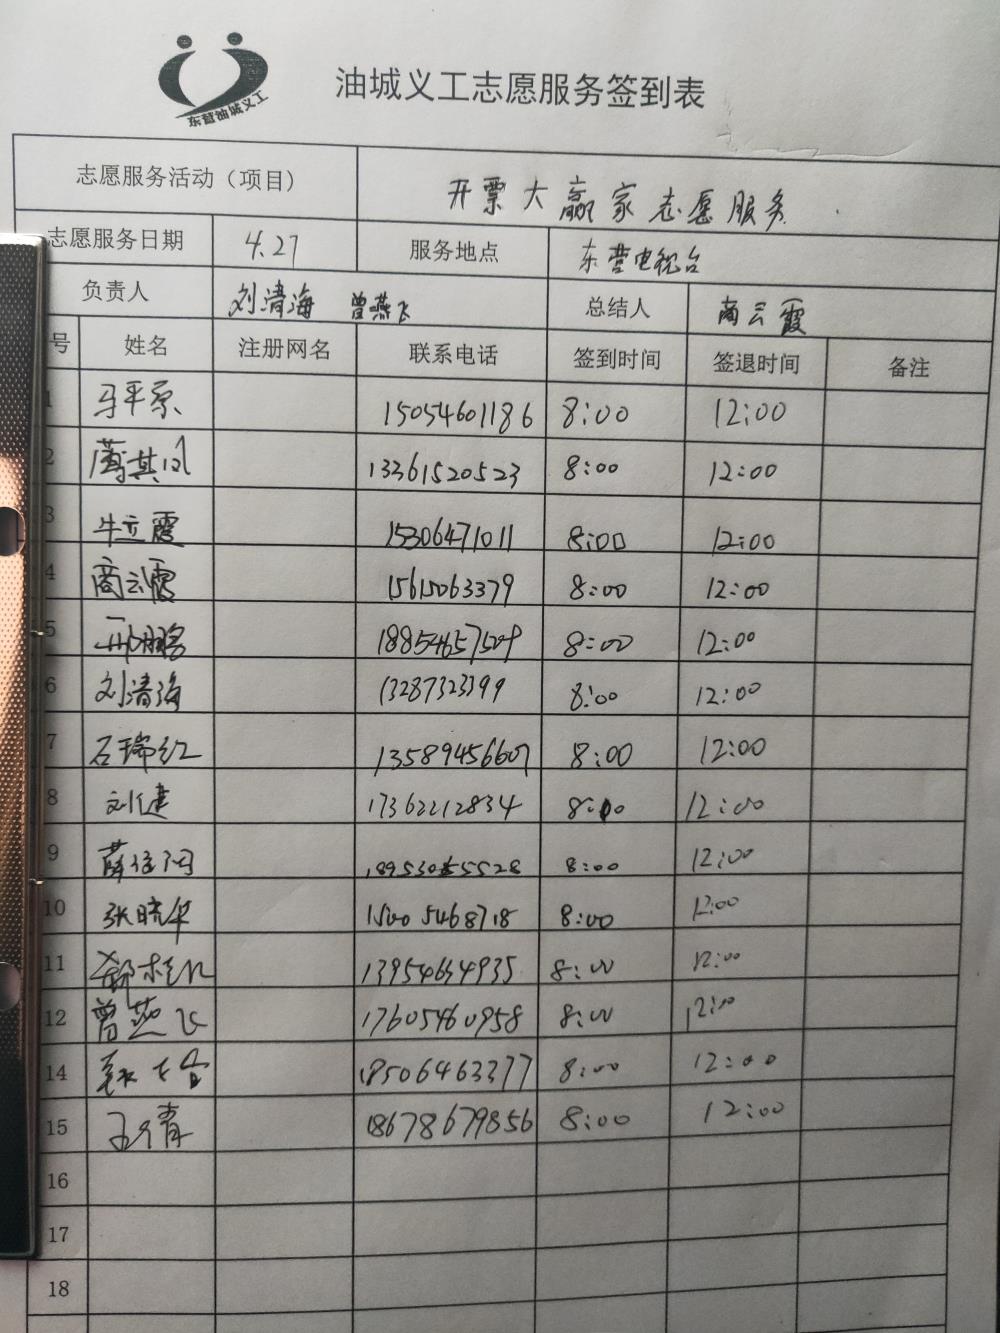 东营油城义工
油城义工志愿服务签到表
志愿服务活动（项目） 开票大赢家志愿服务
志愿服务日期 4.27 服务地点 东营电视台
负责人 刘清海 曾燕飞 总结人 商云霞
号 姓名 注册网名 联系电话 签到时间 签退时间 备注
1 马平原 15054601186 8:00 12:00
2 薄其凤 13361520523 8:00 12:00
3 牛立霞 15306471011 8:00 12:00
4 商云霞 15615063379 8:00 12:00
5 邢鹏 18854657509 8:00 12:00
6 刘清海 13287323399 8:00 12:00
7 石瑞红 13589456607 8:00 12:00
8 刘健 17362212834 8:00 12:00
9 8:00 12:00
10 张晓华 15005468718 8:00 12:00
11 13954634935 8:00 12:00
12 曾燕飞 17605460958 8:00 12:10
14 18506463377 8:00 12:00
15 18678679856 8:00 12:00
16
17
18